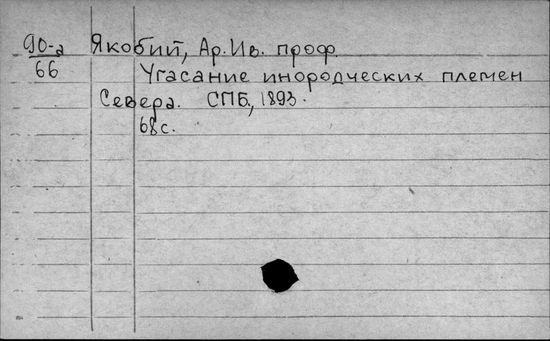 90-а Якобий, Ар. Ив. проф.
66 Угасание инородческих племен
Севера. СПБ, 1893.
68 с.